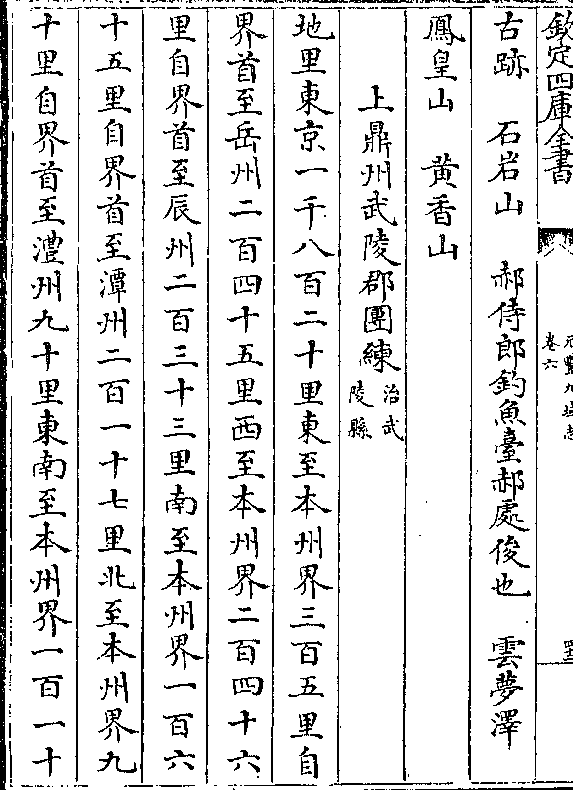 欽定四庫全書
元豐九域志
卷六
古跡　石岩山　郝侍郎釣魚臺郝處俊也　雲夢澤
鳳皇山　黃香山
上鼎州武陵郡團練治武陵縣
地里東京一千八百二十里東至本州界三百五里自
界首至岳州二百四十五里西至本州界二百四十六
里自界首至辰州二百三十三里南至本州界一百六
十五里自界首至潭州二百一十七里北至本州界九
十里自界首至澧州九十里東南至本州界一百一十